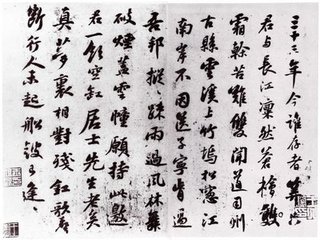 三十三年今誰存者算只
君與長江凜然蒼檜
霜榦苦難雙聞道司州
古縣雲溪上竹塢松窗江
南岸不因送子寧肯過
吾邦摐〻疎雨過風林舞
破煙蓋雲幢願持此邀
君一飲空缸居士先生老矣
真夢裏相對殘釭歌舞
斷行人未起船鼓已逢〻